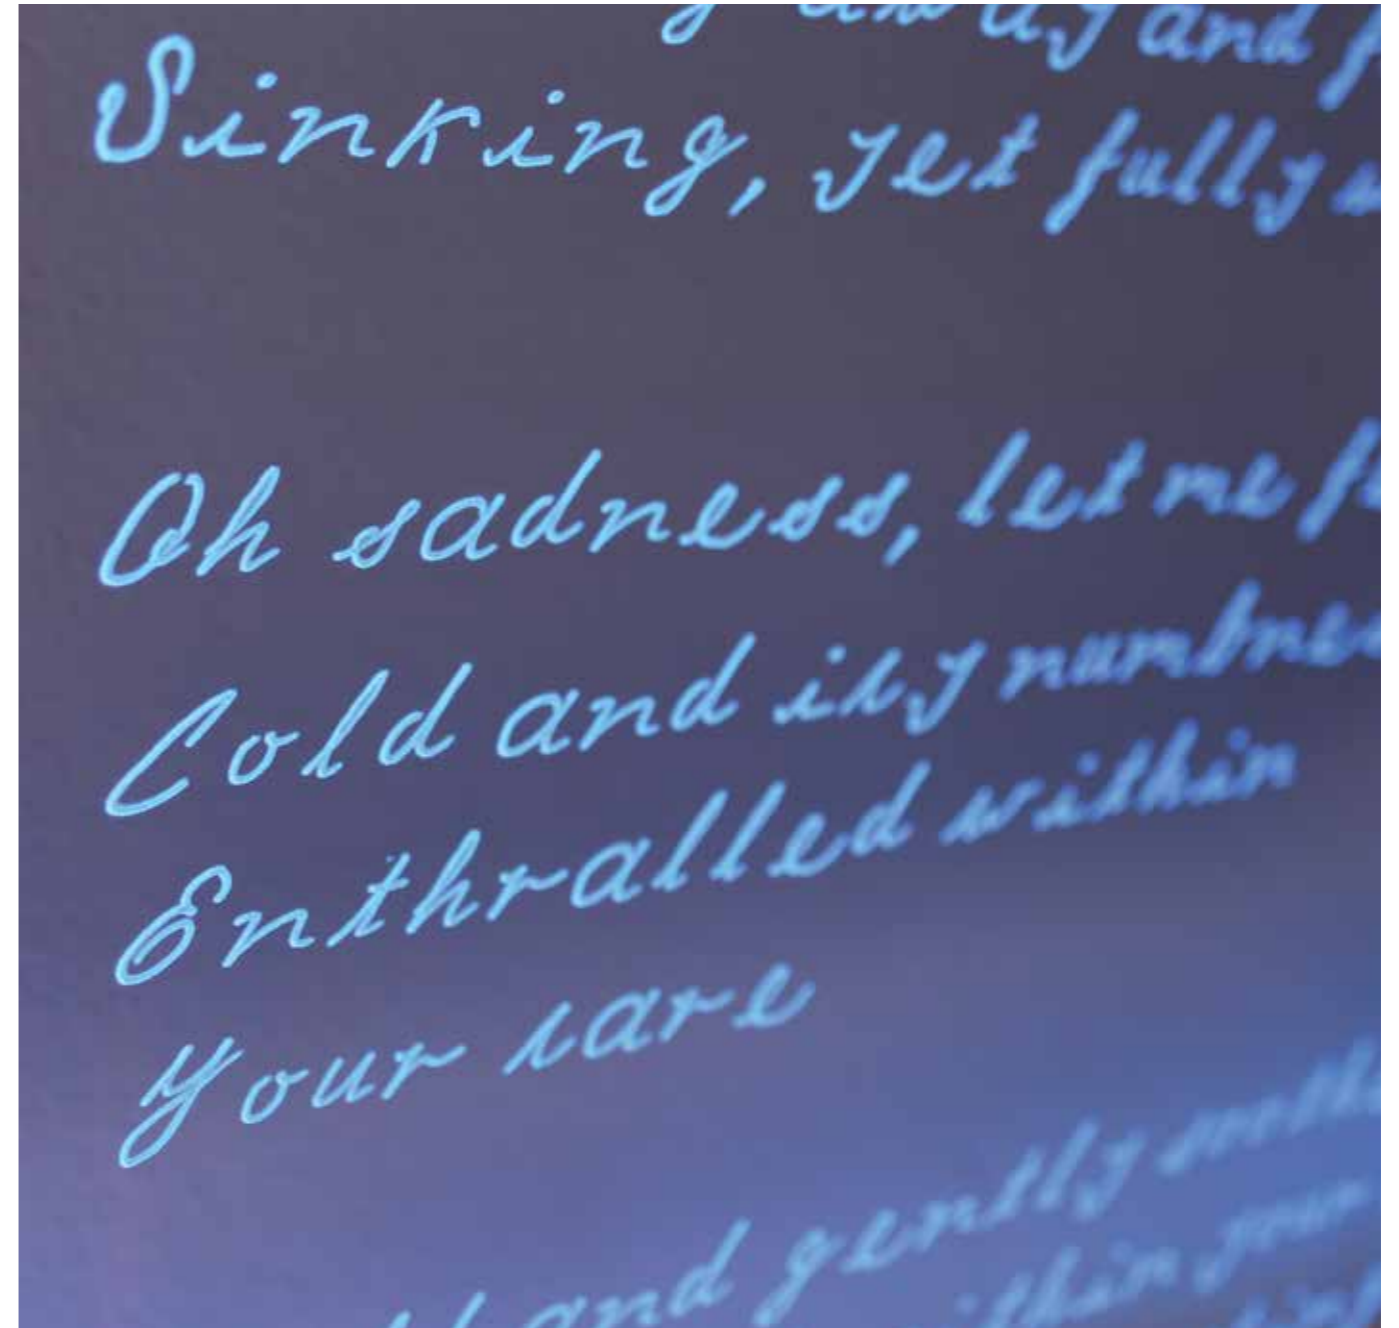 away and
Sinking, yet fully
Oh sadness, let me
Cold and icy
Enthralled within
Your care
and gently
your